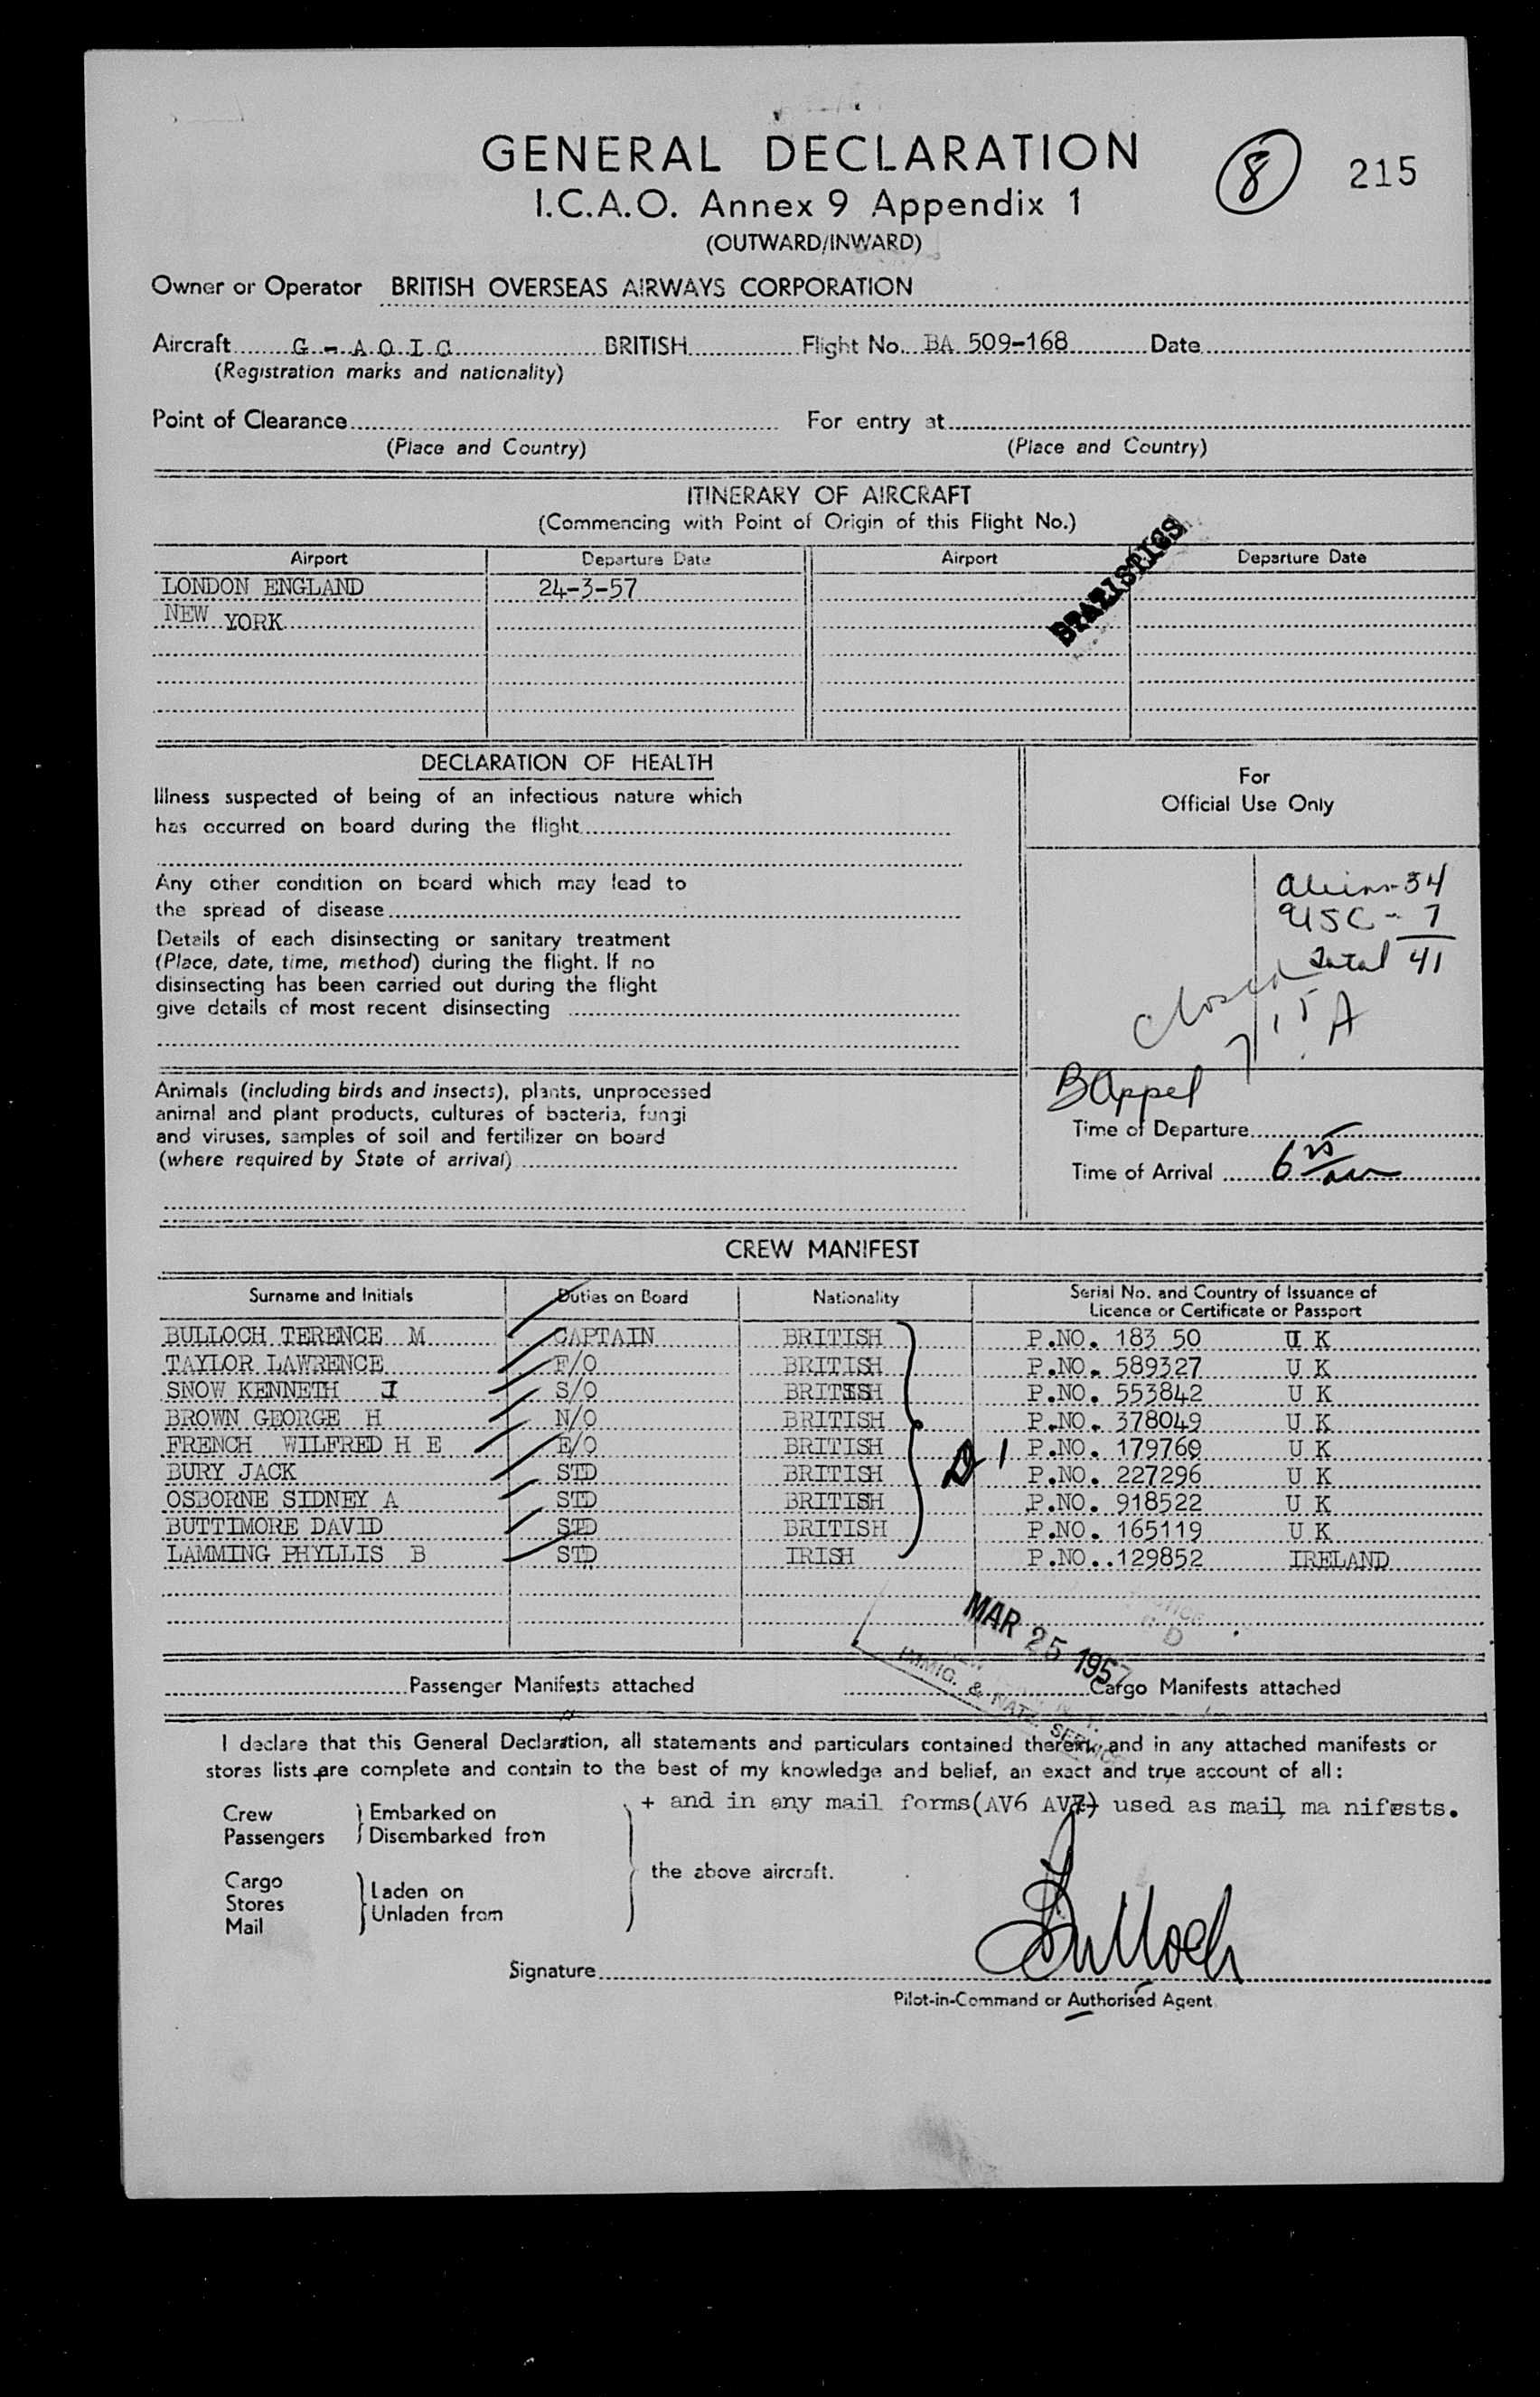 GENERAL DECLARATION
8 215
I.C.A.O. Annex 9 Appendix 1
(OUTWARD/INWARD)
Owner or Operator BRITISH OVERSEAS AIRWAYS CORPORATION
Aircraft G - A O I C BRITISH Flight No. BA 509-168 Date
(Registration marks and nationality)
Point of Clearance For entry at
(Place and Country) (Place and Country)
ITINERARY OF AIRCRAFT
(Commencing with Point of Origin of this Flight No.)
STATISTICS
Airport Departure Date Airport Departure Date
LONDON ENGLAND 24-3-57
NEW YORK
DECLARATION OF HEALTH
Illness suspected of being of an infectious nature which
has occurred on board during the flight
Any other condition on board which may lead to
the spread of disease
Details of each disinsecting or sanitary treatment
(Place, date, time, method) during the flight. If no
disinsecting has been carried out during the flight
give details of most recent disinsecting
Animals (including birds and insects), plants, unprocessed
animal and plant products, cultures of bacteria, fungi
and viruses, samples of soil and fertilizer on board
(where required by State of arrival)
For
Official Use Only
Aliens-34
USC - 7
Total 41
Closed
7 15 A
B Appel
Time of Departure
Time of Arrival 6 25 am
CREW MANIFEST
Surname and Initials Duties on Board Nationality Serial No. and Country of Issuance of
Licence or Certificate or Passport
BULLOCH TERENCE M CAPTAIN BRITISH P.NO. 183 50 U K
TAYLOR LAWRENCE F/O BRITISH P.NO. 589327 U K
SNOW KENNETH J S/O BRITISH P.NO. 553842 U K
BROWN GEORGE H N/O BRITISH P.NO. 378049 U K
FRENCH WILFRED H E E/O BRITISH P.NO. 179769 U K
BURY JACK STD BRITISH P.NO. 227296 U K
OSBORNE SIDNEY A STD BRITISH P.NO. 918522 U K
BUTTIMORE DAVID STD BRITISH P.NO. 165119 U K
LAMMING PHYLLIS B STD IRISH P.NO..129852 IRELAND
D 1
MAR 25 1957
IMMIG. & NATZ. SERVICE
Passenger Manifests attached Cargo Manifests attached
I declare that this General Declaration, all statements and particulars contained therein, and in any attached manifests or
stores lists are complete and contain to the best of my knowledge and belief, an exact and true account of all:
+ and in any mail forms(AV6 AV7) used as mail ma nifests.
Crew Embarked on
Passengers Disembarked from
the above aircraft.
Cargo
Stores Laden on
Mail Unladen from
Signature Bulloch
Pilot-in-Command or Authorised Agent